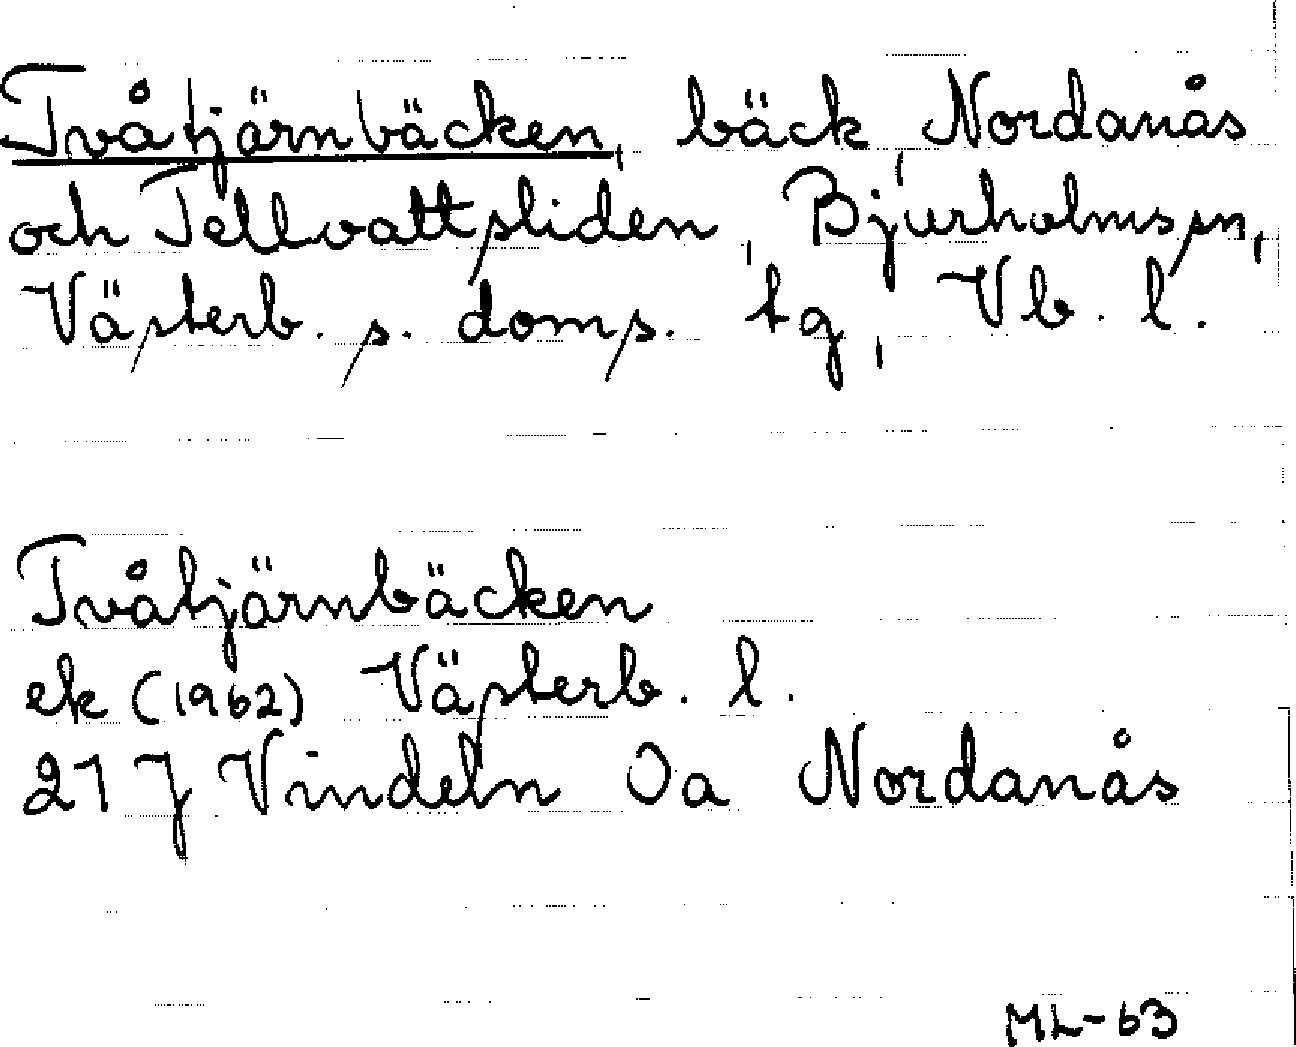 Tvåtjärnbäcken, bäck, Nordanås
och Tellvattsliden, Bjurholms sn,
Västerb. s. doms. tg, Vb. l.
Tvåtjärnbäcken
ek (1962) Västerb. l.
21 J Vindeln 0a Nordanås
ML-63